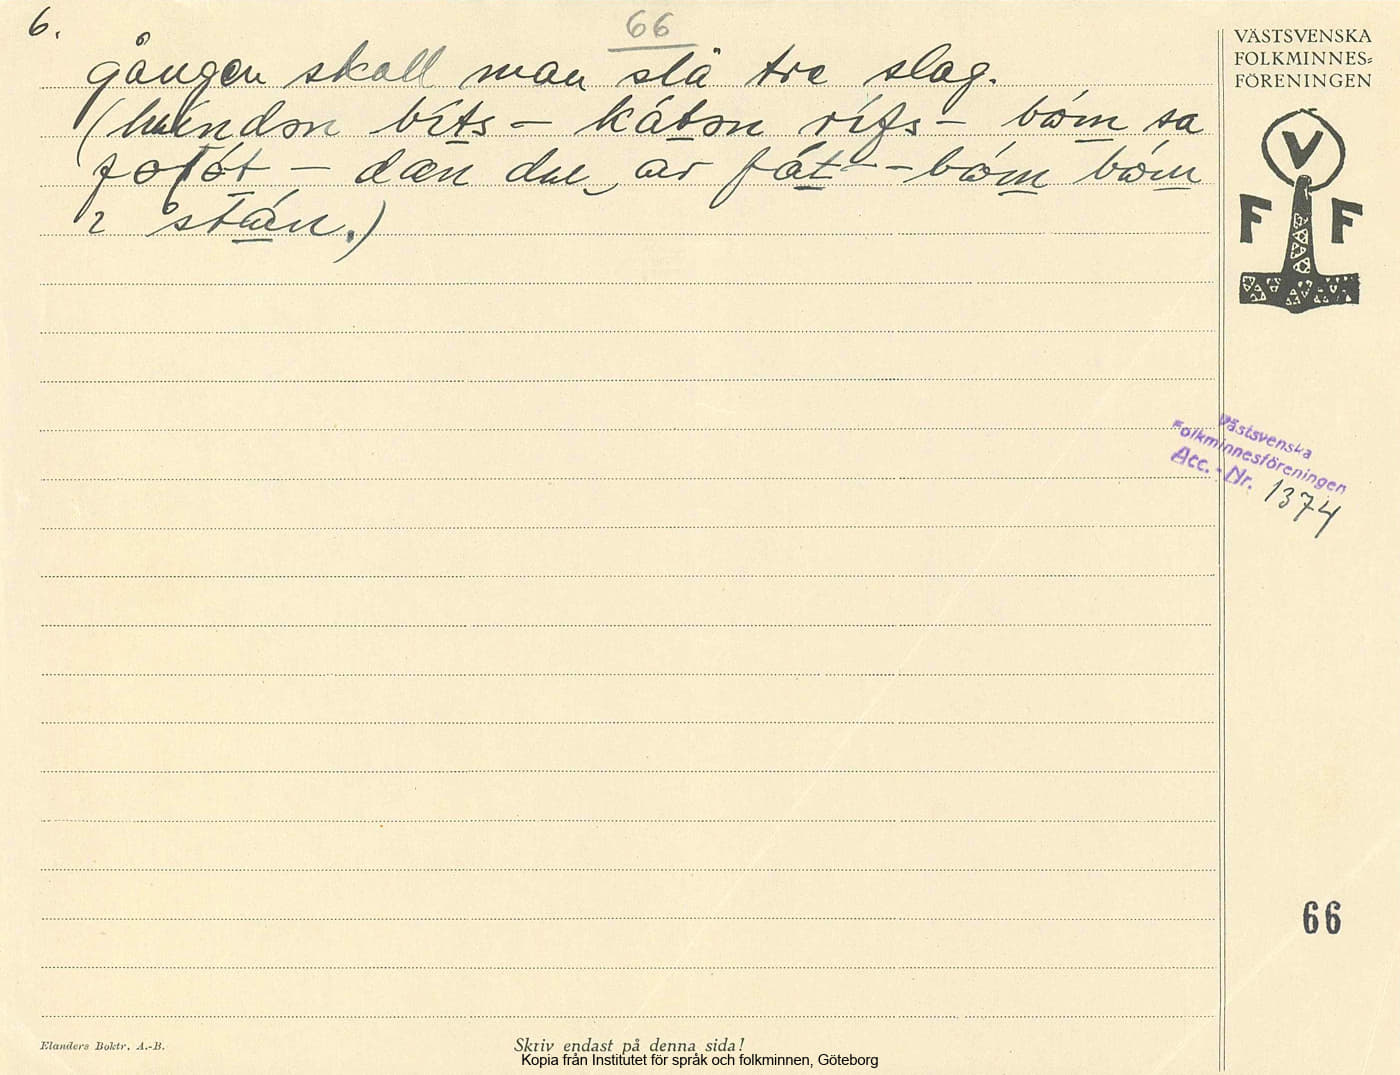 6.
66
gången skall man slå tre slag.
(hundən bíts – kátən rífs – bóm sa
– dæn du ær fát – bóm bóm
i stán.)
VÄSTSVENSKA
FOLKMINNES=
FÖRENINGEN
V
F F
Västsvenska
Folkminnesföreningen
Acc. - Nr. 1374
66
Elanders Boktr. A.-B.
Skriv endast på denna sida!
Kopia från Institutet för språk och folkminnen, Göteborg